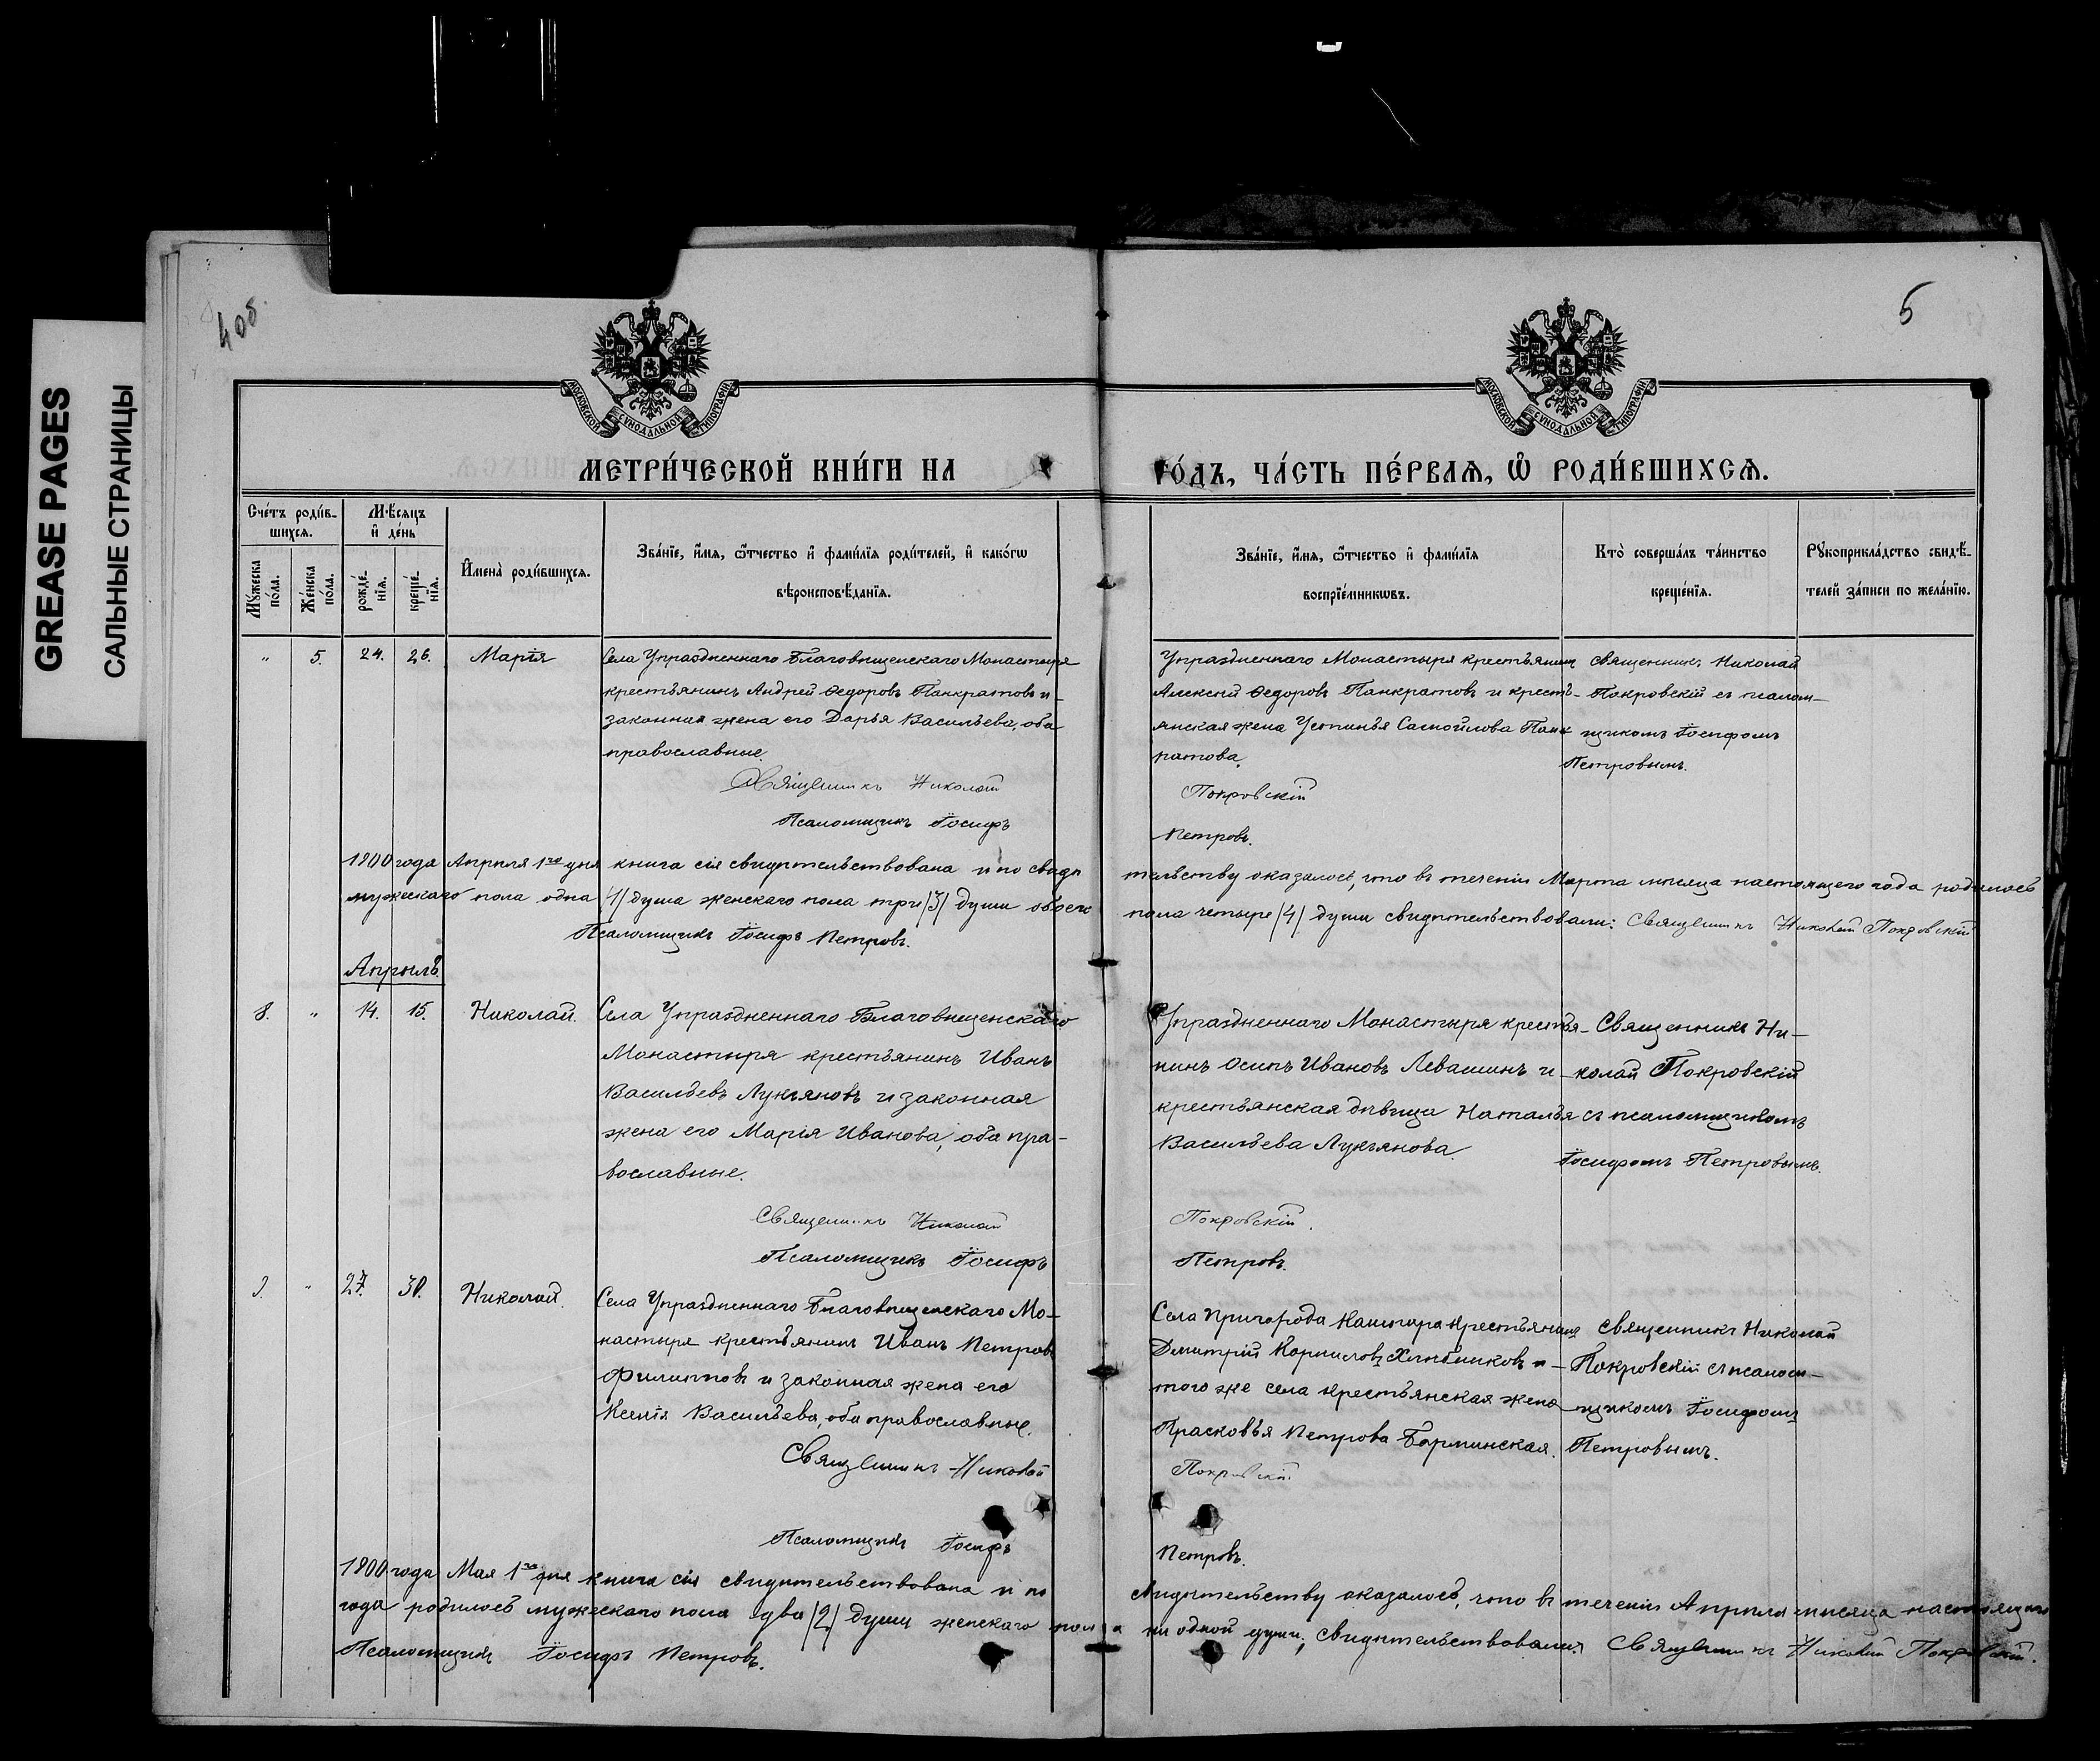 GREASE PAGES
САЛЬНЫЕ СТРАНИЦЫ
5
МОСКОВСКОЙ СѴНОДАЛЬНОЙ ТИПОГРАФІИ
МОСКОВСКОЙ СѴНОДАЛЬНОЙ ТИПОГРАФІИ
МЕТРИ́ЧЕСКОЙ КНИ́ГИ НА ГО́ДЪ, ЧА́СТЬ ПЕ́РВАѦ, Ѡ҆ РОДИ́ВШИХСѦ.
Сче́тъ роди́в-
шихся.
Мѣ́сяцъ
и҆ де́нь
Мꙋ́жеска по́ла.
Же́нска по́ла.
рожде́нїя.
креще́нїя.
И҆мена̀ роди́вшихся.
Зва́нїе, и҆́мя, ѻ҆́тчество и҆ фами́лїя роди́телей, и҆ како́гѡ
вѣроисповѣ́данїя.
Зва́нїе, и҆́мя, ѻ҆́тчество и҆ фами́лїя
воспрїе́мникѡвъ.
Кто̀ соверша́лъ та́инство
креще́нїя.
Рꙋкоприкла́дство свидѣ́-
телей за́писи по жела́нїю.
" 5. 24. 26. Марія
Села Упраздненнаго Благовѣщенскаго Монастыря
крестьянинъ Андрей Ѳедоровъ Панкратовъ и
законная жена его Дарья Васильева, оба
православные.
Упраздненнаго Монастыря крестьянинъ
Алексѣй Ѳедоровъ Панкратовъ и кресть-
янская жена Устинья Самойлова Панк
ратова.
Священникъ Николай
Покровскій съ псалом-
щикомъ Іосифомъ
Петровымъ.
Священникъ Николай Покровскій
Псаломщикъ Іосифъ Петровъ.
1900 года Апрѣля 1го дня книга сія свидѣтельствована и по свидѣтельству оказалось, что въ теченіи Марта мѣсяца настоящего года родилось
мужескаго пола одна /1/ душа женскаго пола три /3/ души обоего пола четыре /4/ души свидѣтельствовали: Священникъ Николай Покровскій
Псаломщикъ Іосифъ Петровъ.
Апрѣль.
8. " 14. 15. Николай.
Села Упраздненнаго Благовѣщенскаго
Монастыря крестьянинъ Иванъ
Васильевъ Лукьяновъ и законная
жена его Марія Иванова, оба пра-
вославные.
Упраздненнаго Монастыря крестья-
нинъ Осипъ Ивановъ Левашинъ и
крестьянская дѣвица Наталья
Васильева Лукьянова.
Священникъ Ни-
колай Покровскій
съ псаломщикомъ
Іосифомъ Петровымъ.
Священникъ Николай Покровскій.
Псаломщикъ Іосифъ Петровъ.
9. " 27. 30. Николай.
Села Упраздненнаго Благовѣщенскаго Мо-
настыря крестьянинъ Иванъ Петровъ
Филипповъ и законная жена его
Ксенія Васильева, оба православные.
Села Пригорода крестьянинъ
Дмитрій Хлѣбниковъ и
того же села крестьянская жена
Прасковья Петрова
Священникъ Николай
Покровскій съ псалом-
щикомъ Іосифомъ
Петровымъ.
Священникъ Николай Покровскій
Псаломщикъ Іосифъ Петровъ.
1900 года Мая 1го дня книга сія свидѣтельствована и по свидѣтельству оказалось, что въ теченіи Апрѣля мѣсяца настоящаго
года родилось мужескаго пола два /2/ души женскаго пола ни одной души; свидѣтельствовали Священникъ Николай Покровскій.
Псаломщикъ Іосифъ Петровъ.